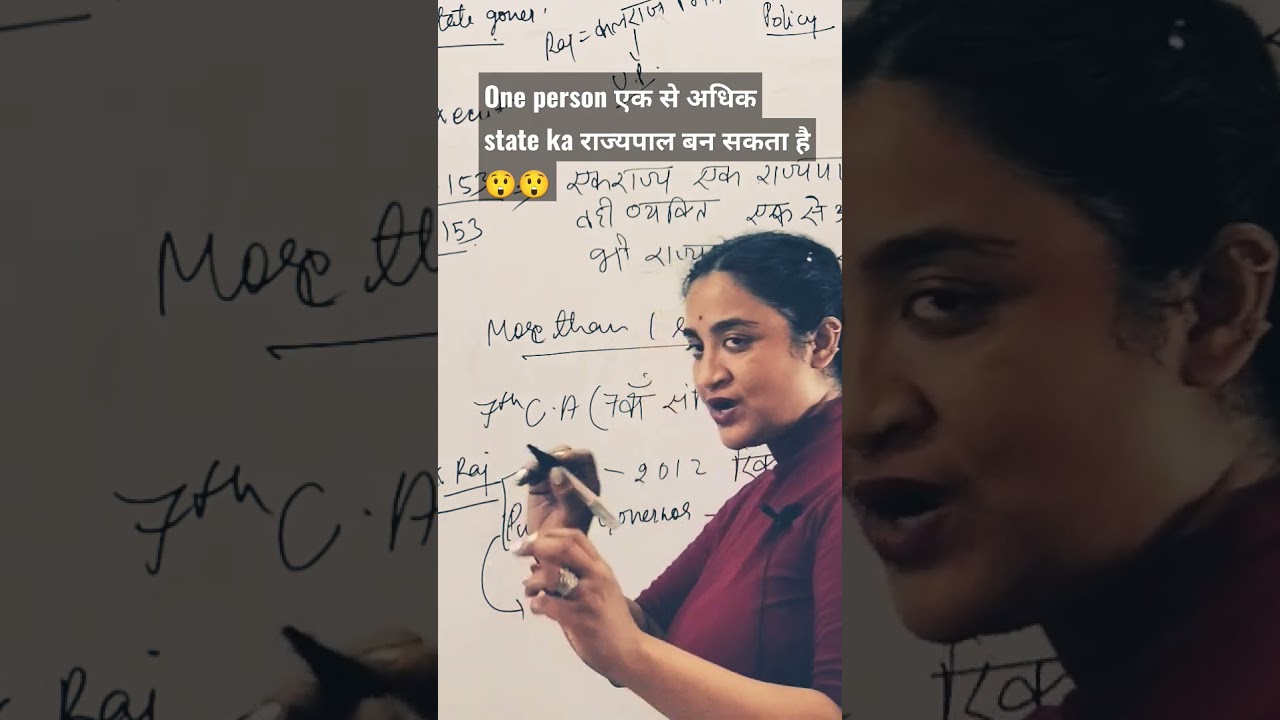 tate goner
Policy
Raj = कलराज
U.P.
One person एक से अधिक
state ka राज्यपाल बन सकता है
😲😲
153
एकराज्य एक राज्यपा
153
वही व्यक्ति एक से अ
भी राज्य
More than 1
7th C.A (7वाँ सं
Raj
- 2012
Governor -
More th
7th C.A
Raj